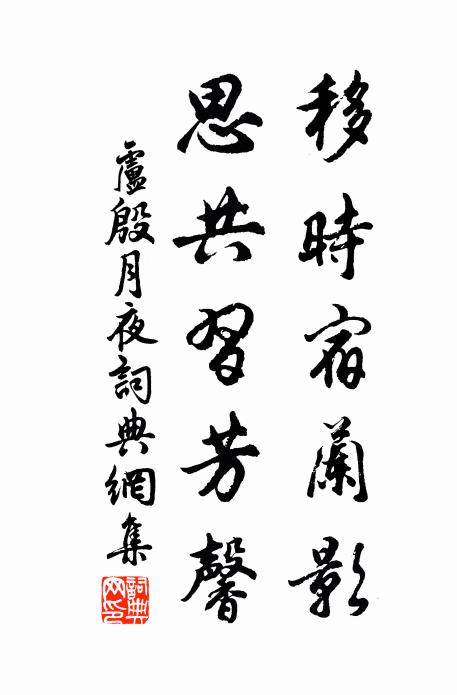 移時宿蘭影
思共習芳馨
盧殷月夜詞典網集
詞典網印